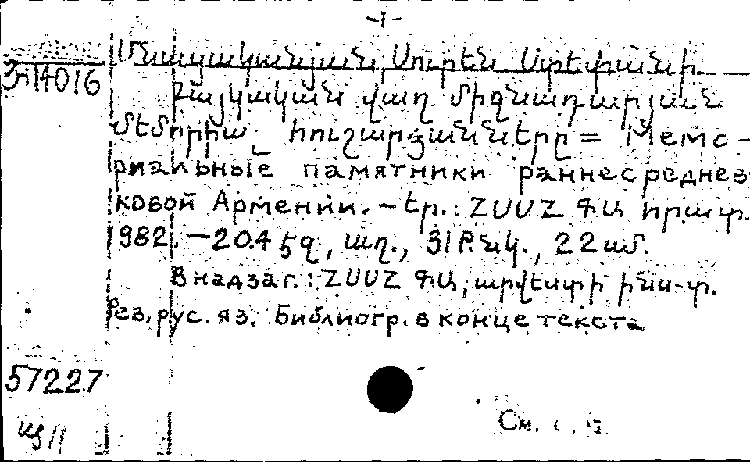 -1-
Մնացականյան Սուրեն Ստեփանի
Зп14016
Հայկական վաղ միջնադարյան
մեմորիալ հուշարձանները = Мемо-
риальные памятники раннесреднев
ковой Армении. – Եր.: ՀՍՍՀ ԳԱ հրատ.
1982. – 204 էջ, աղ., 31 նկ., 22 սմ.
В надзаг.: ՀՍՍՀ ԳԱ, արվեստի ինս-տ.
Рез. рус. яз. Библиогр. в конце текста
57227
См.